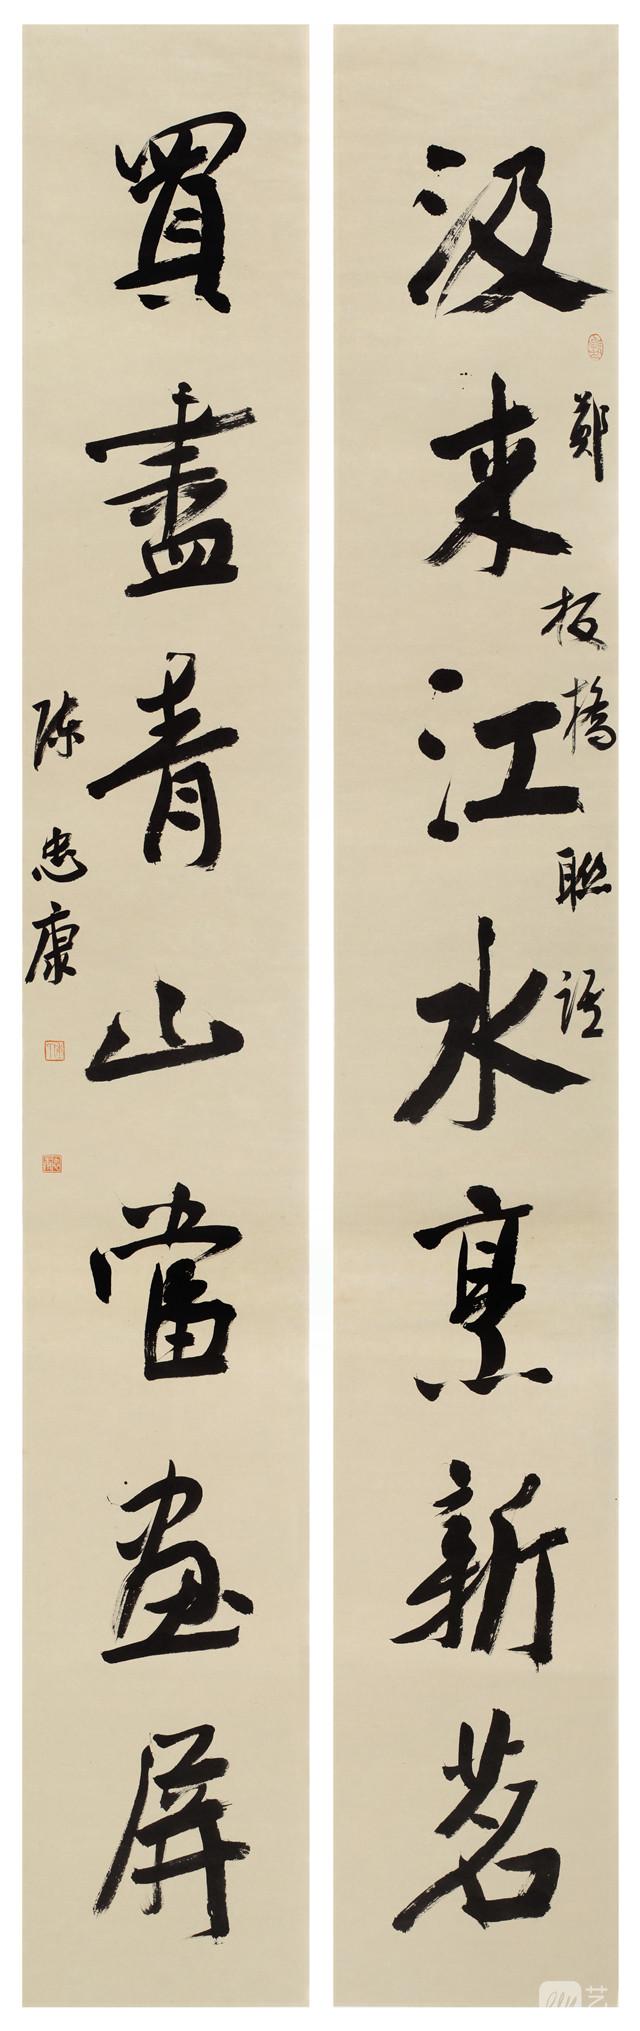 汲来江水烹新茗
鄭板橋聯語
買盡青山當畫屏
陈忠康
艺